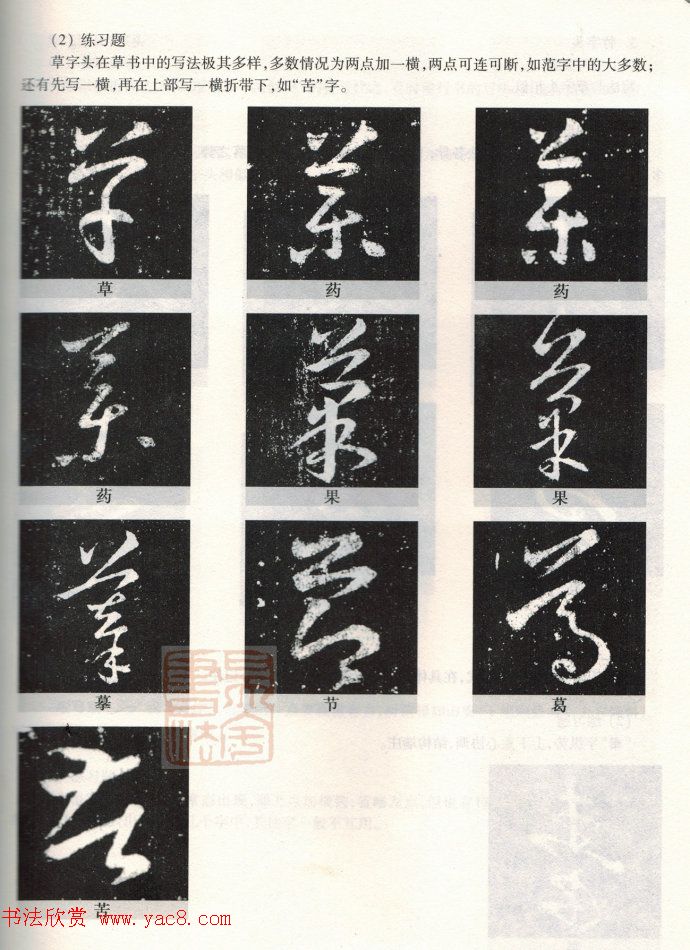 (2) 练习题
草字头在草书中的写法极其多样,多数情况为两点加一横,两点可连可断,如范字中的大多数;
还有先写一横,再在上部写一横折带下,如“苦”字。
草 药 药
药 果 果
摹 节 葛
苦
书法欣赏 www.yac8.com